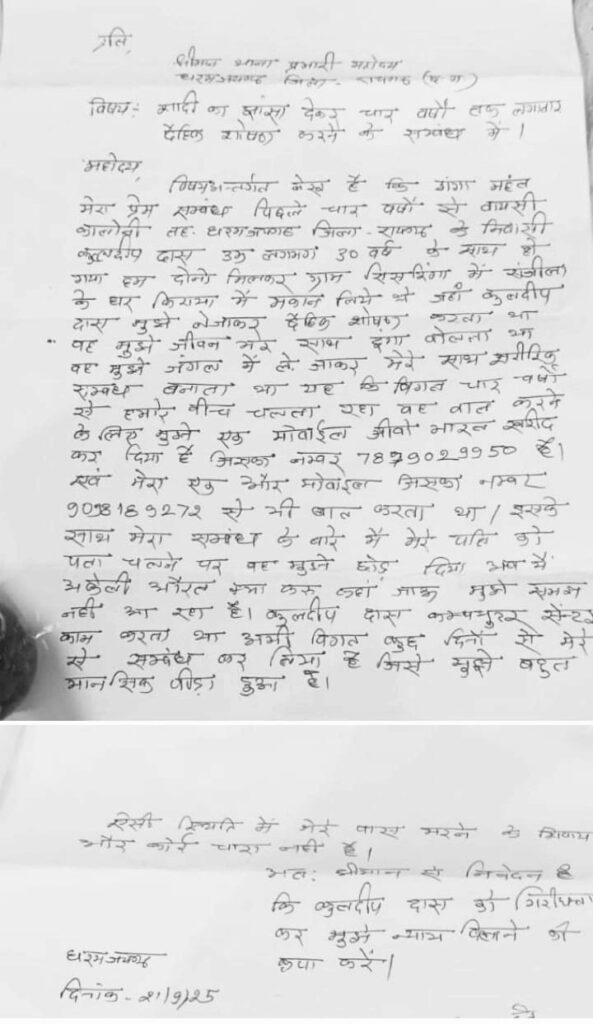 प्रति,
श्रीमान थाना प्रभारी महोदय
धरमजयगढ़ जिला- रायगढ़ (छ ग)
विषय: शादी का झांसा देकर चार वर्षो तक लगातार
दैहिक शोषण करने के सम्बंध में।
महोदय,
विषयअन्तर्गत लेख है कि गंगा महंत
मेरा प्रेम सम्बंध पिछले चार वर्षो से वायसी
कालोनी तह. धरमजयगढ जिला - रायगढ के निवासी
कुलदीप दास उम्र लगभग 30 वर्ष के साथ हो
गया हम दोनो मिलकर ग्राम सिसरिंगा में
के घर किराया में मकान लिये थे जहाँ कुलदीप
दास मुझे लेजाकर दैहिक शोषण करता था
वह मुझे जीवन भर साथ दुंगा बोलता था
वह मुझे जंगल में ले जाकर मेरे साथ शारीरिक
सम्बंध बनाता था यह कि विगत चार वर्षो
से हमारे बीच चलता रहा वह बात करने
के लिए मुझे एक मोबाईल जीवो भारत खरीद
कर दिया है जिसका नम्बर 7879029950 है।
एवं मेरा एक और मोबाईल जिसका नम्बर
9098169272 से भी बात करता था। इसके
साथ मेरा सम्बंध के बारे में मेरे पति को
पता चलने पर वह मुझे छोड़ दिया अब मैं
अकेली औरत क्या करू कहां जाऊ मुझे समझ
नही आ रहा है। कुलदीप दास कम्प्युटर सेंटर
काम करता था अभी विगत कुछ दिनों से मेरे
से सम्बंध कर लिया है जिसे मुझे बहुत
मानसिक पीड़ा हुआ है।
ऐसी स्थिति में मेरे पास मरने के सिवाय
और कोई चारा नही है।
अत: श्रीमान से निवेदन है
कि कुलदीप दास को
कर मुझे न्याय दिलाने की
कृपा करें।
धरमजयगढ
दिनांक - 21/9/25